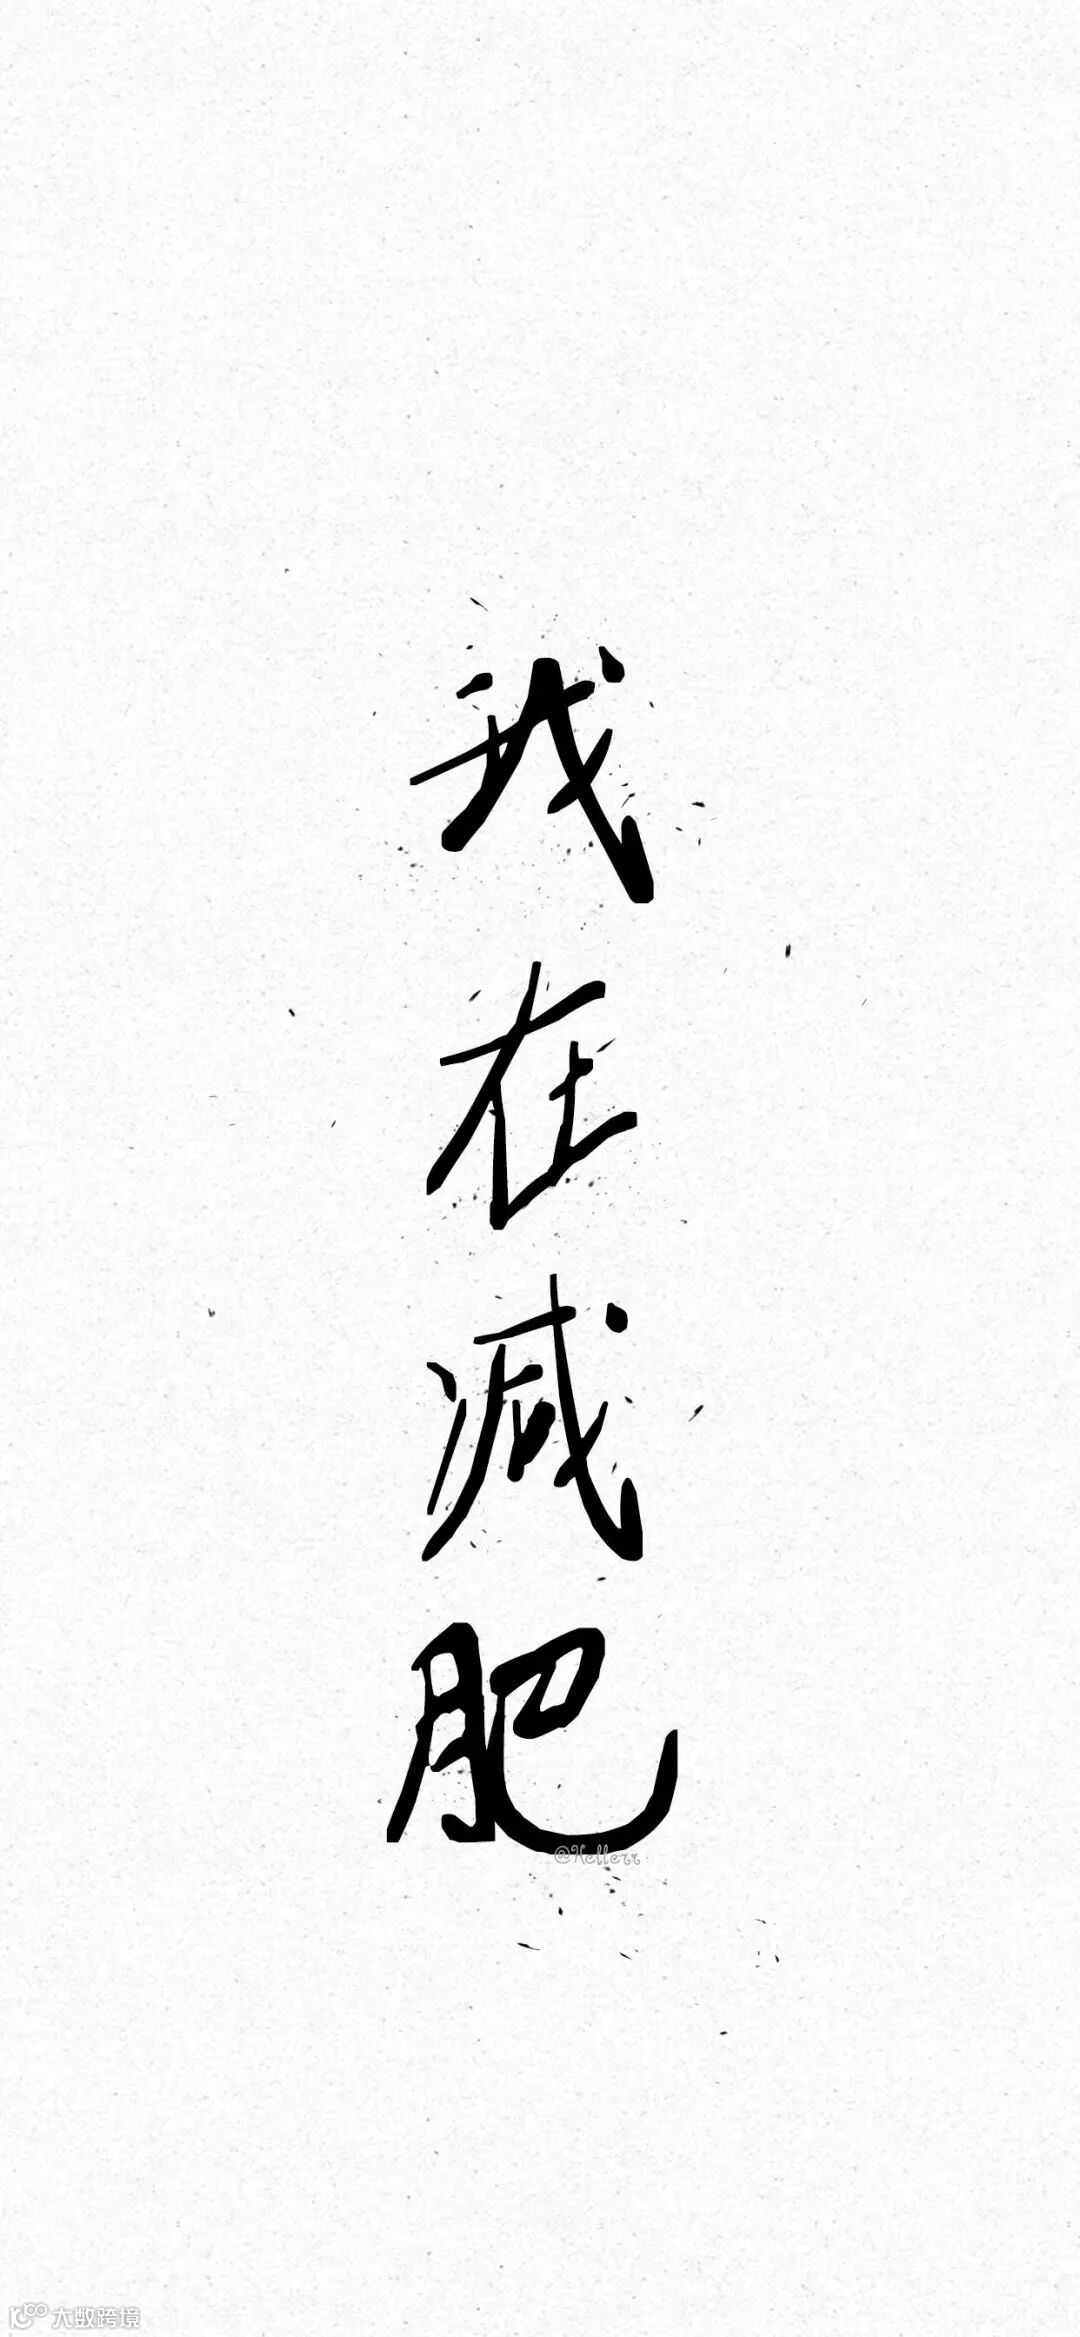 我在减肥
@Hellerr
大数跨境